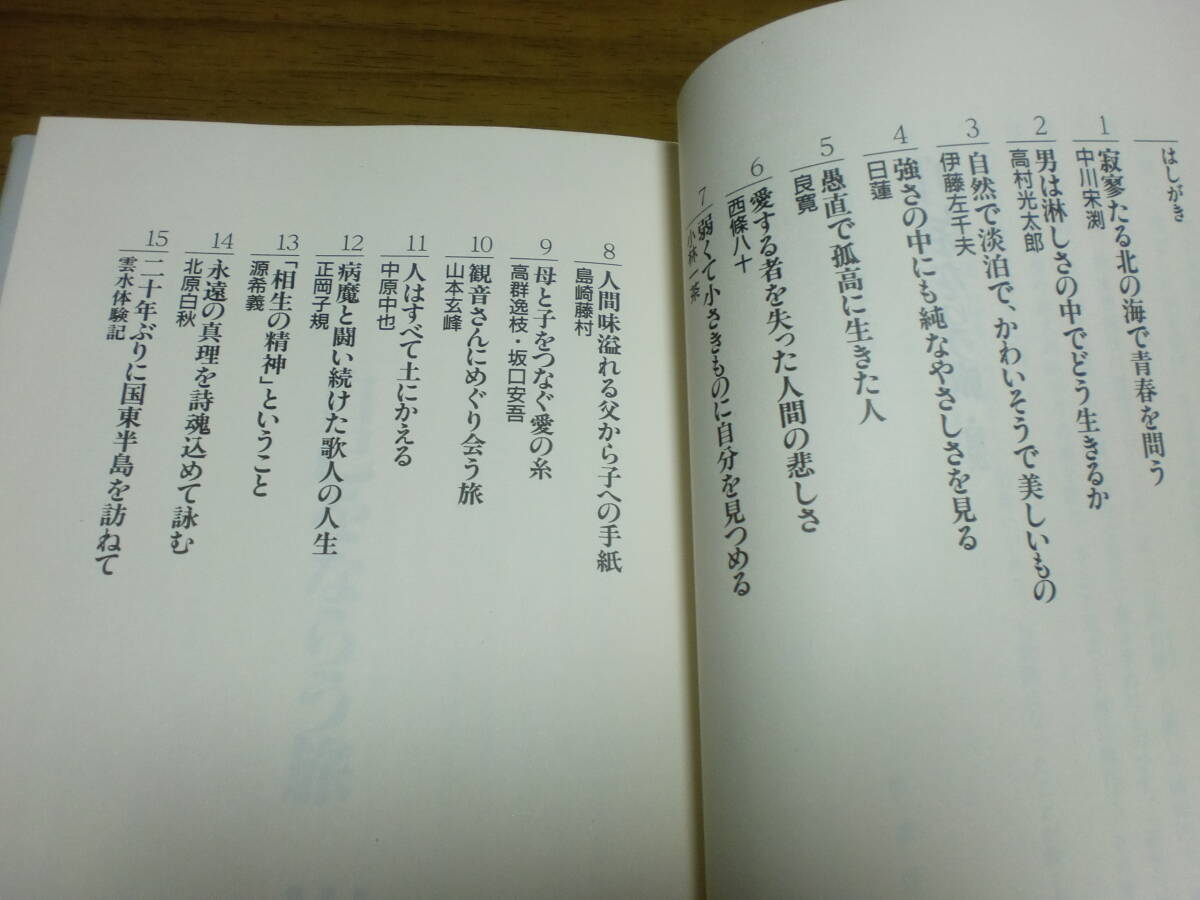 はしがき
1
寂寥たる北の海で青春を問う
中川宋渕
2
男は淋しさの中でどう生きるか
高村光太郎
3
自然で淡泊で、かわいそうで美しいもの
伊藤左千夫
4
強さの中にも純なやさしさを見る
日蓮
5
愚直で孤高に生きた人
良寛
6
愛する者を失った人間の悲しさ
西條八十
7
弱くて小さきものに自分を見つめる
小林一茶
8
人間味溢れる父から子への手紙
島崎藤村
9
母と子をつなぐ愛の糸
高群逸枝・坂口安吾
10
観音さんにめぐり会う旅
山本玄峰
11
人はすべて土にかえる
中原中也
12
病魔と闘い続けた歌人の人生
正岡子規
13
「相生の精神」ということ
源希義
14
永遠の真理を詩魂込めて詠む
北原白秋
15
二十年ぶりに国東半島を訪ねて
雲水体験記